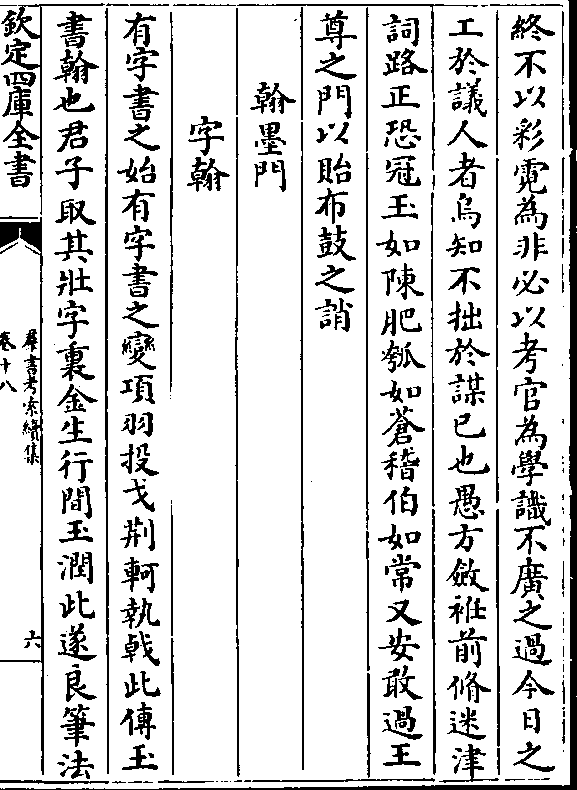 終不以彩霓為非必以考官為學識不廣之過今日之
工於議人者烏知不拙於謀已也愚方斂袵前脩迷津
詞路正恐冠玉如陳肥瓠如蒼稽伯如常又安敢過王
尊之門以貽布鼓之誚
翰墨門
字翰
有字書之始有字書之變項羽投戈荆軻執㦸此傳玉
書翰也君子取其壯字裏金生行間玉潤此遂良筆法
欽定四庫全書
羣書考索續集
卷十八
六